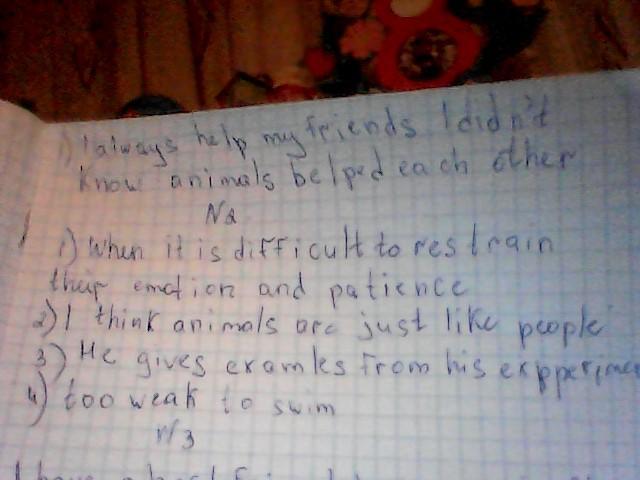 1) I always help my friends I didn't
know animals helped each other
N2
1) When it is difficult to restrain
their emotion and patience
2) I think animals are just like people
3) He gives examles from his expperimen
4) too weak to swim
N3
I have a best friend